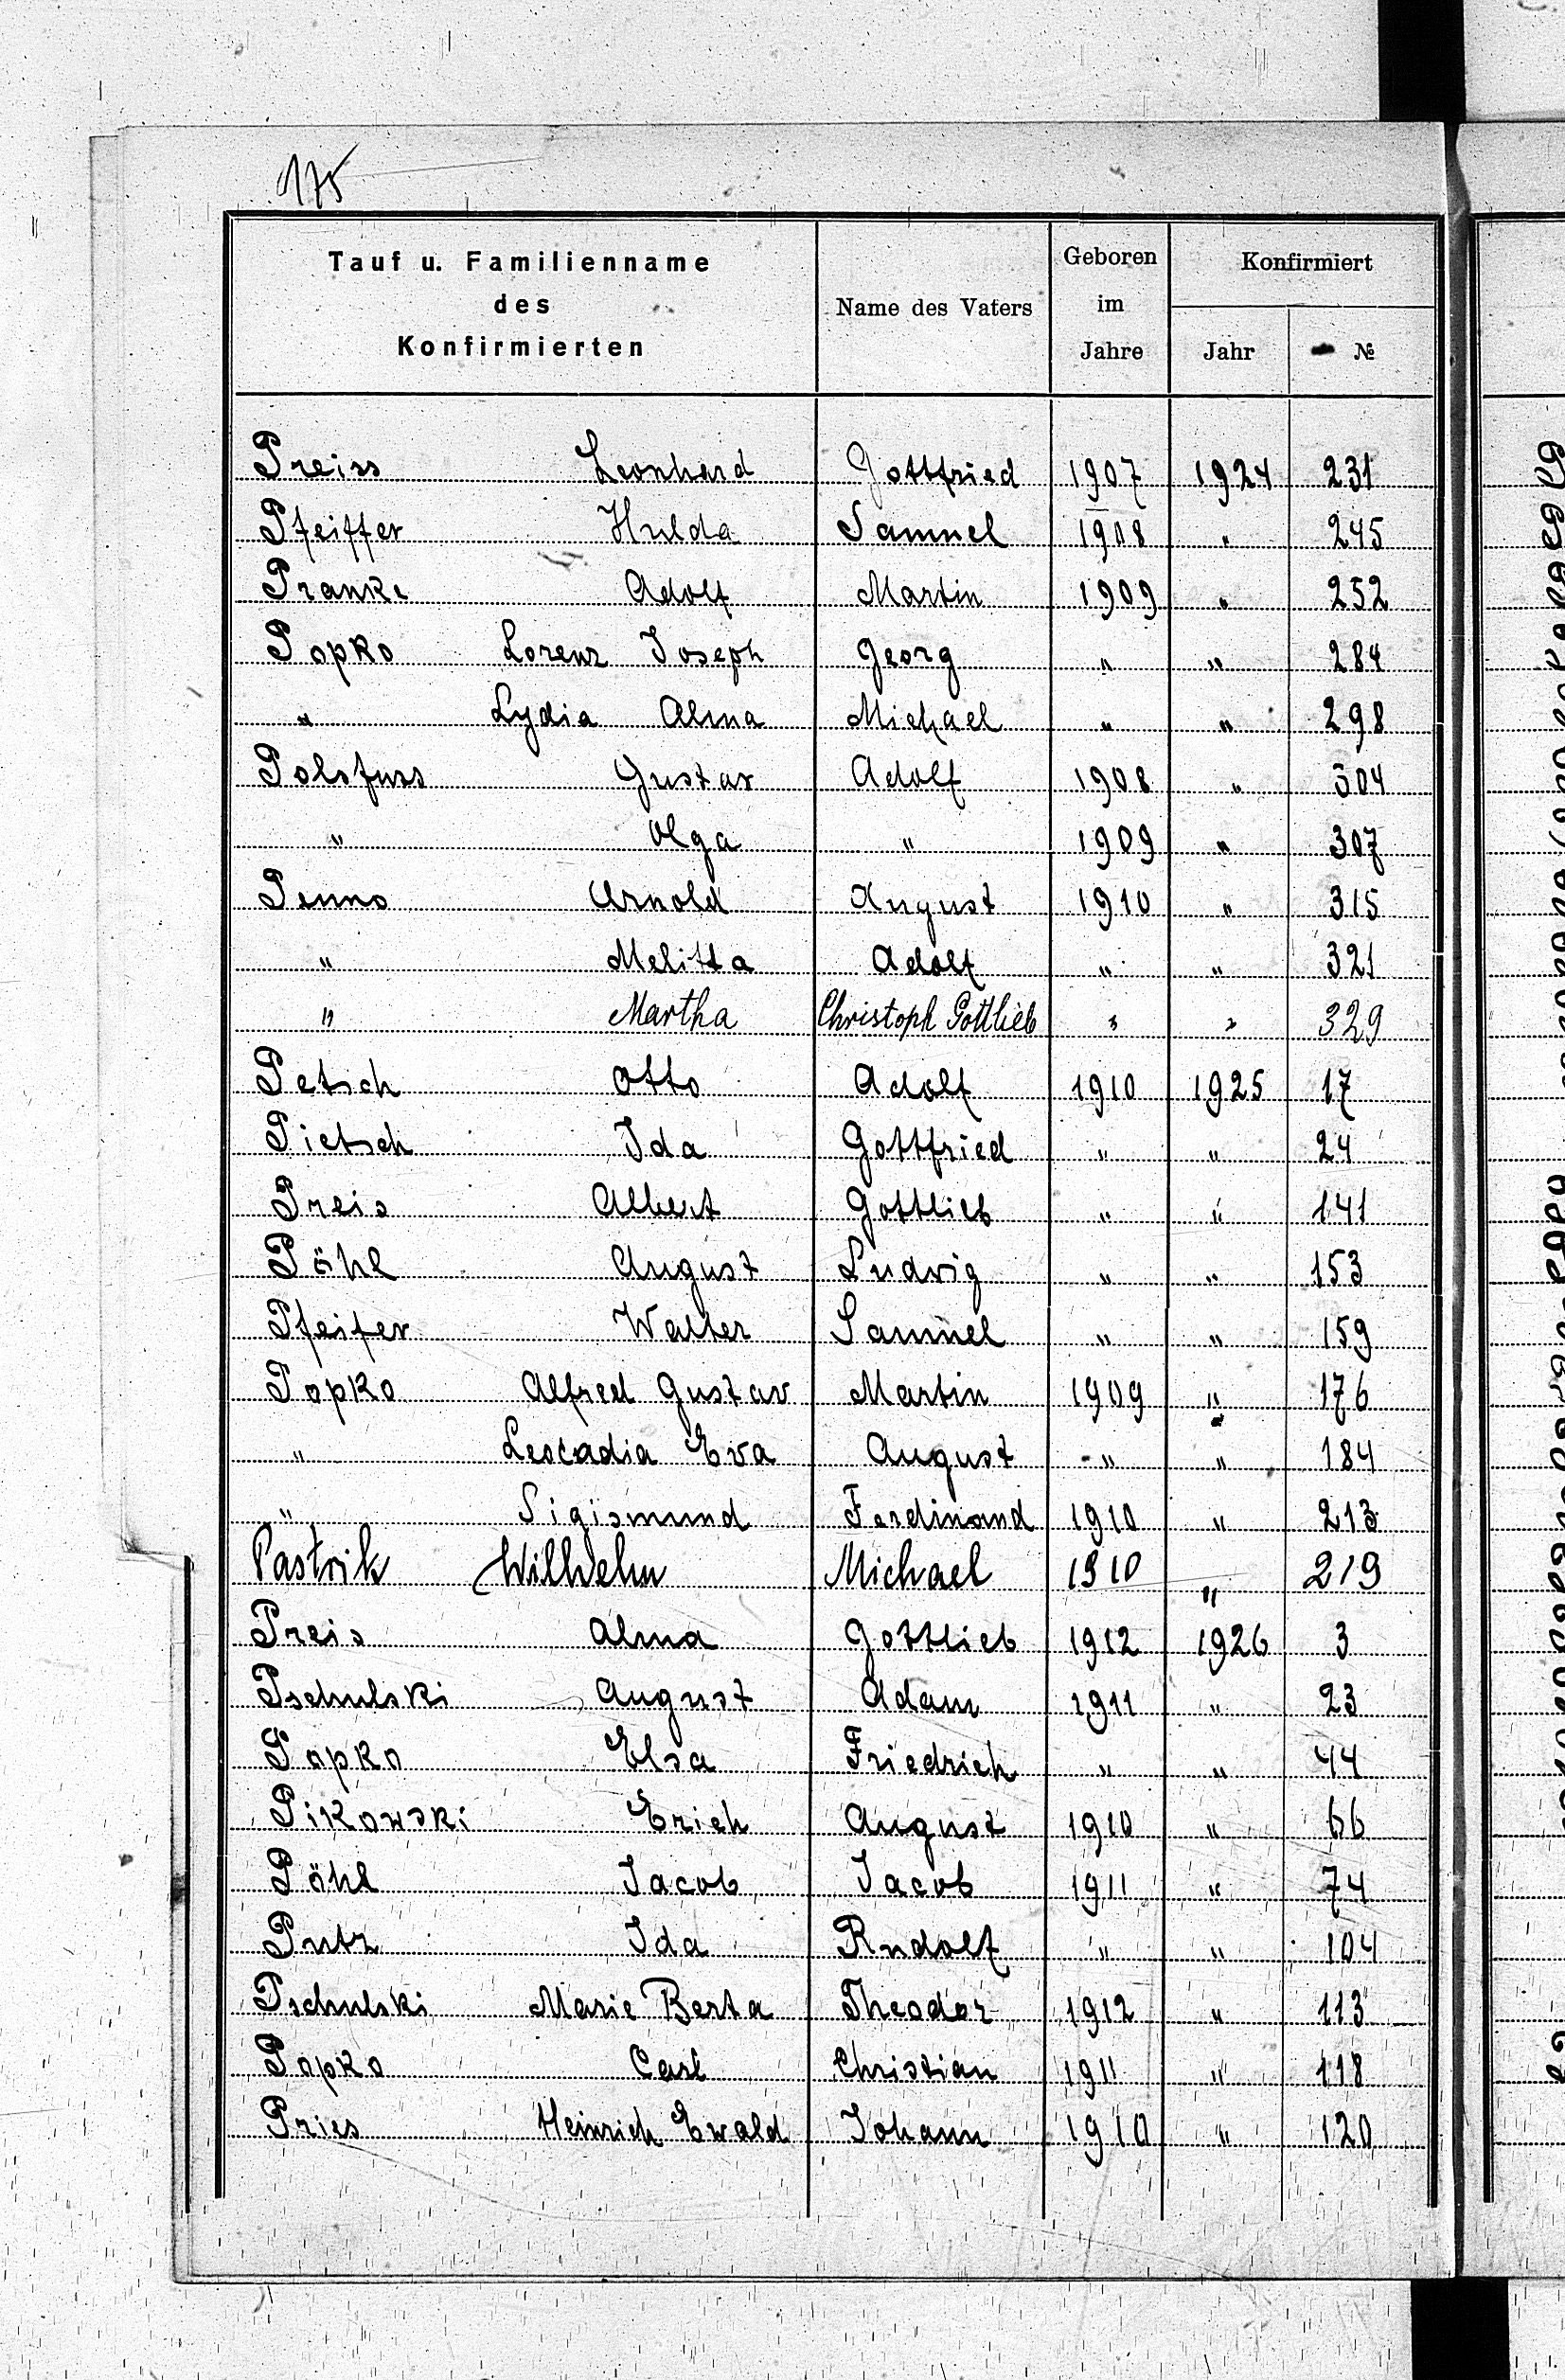 175
Tauf u. Familienname des Konfirmierten Name des Vaters Geboren im Jahre Konfirmiert Jahr №
Preiss Leonhard Gottfried 1907 1924 231
Pfeiffer Hulda Samuel 1908 " 245
Pranke Adolf Martin 1909 " 252
Popko Lorenz Joseph Georg " " 284
" Lydia Alma Michael " " 298
Polsfuss Gustav Adolf 1908 " 304
" Olga " 1909 " 307
Penno Arnold August 1910 " 315
" Melitta Adolf " " 321
" Martha Christoph Gottlieb " " 329
Petsch Otto Adolf 1910 1925 17
Pietsch Ida Gottfried " " 24
Preis Albert Gottlieb " " 141
Pöhl August Ludwig " " 153
Pfeifer Walter Samuel " " 159
Popko Alfred Gustav Martin 1909 " 176
" Leocadia Eva August " " 184
" Sigismund Ferdinand 1910 " 213
Pastrik Wilhelm Michael 1910 " 219
Preis Alma Gottlieb 1912 1926 3
Pschulski August Adam 1911 " 23
Popko Elsa Friedrich " " 44
Pikowski Erich August 1910 " 66
Pöhl Jacob Jacob 1911 " 74
Putz Ida Rudolf " " 104
Pschulski Marie Berta Theodor 1912 " 113
Popko Carl Christian 1911 " 118
Pries Heinrich Ewald Johann 1910 " 120